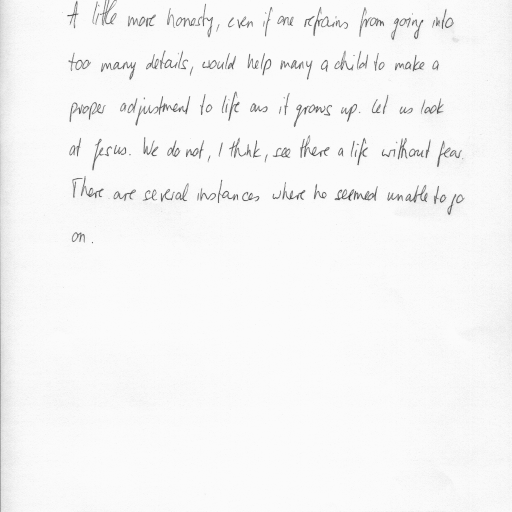 A little more honesty, even if one refrains from going into
too many details, would help many a child to make a
proper adjustment to life as it grows up. Let us look
at Jesus. We do not, I think, see there a life without fear.
There are several instances where he seemed unable to go
on.